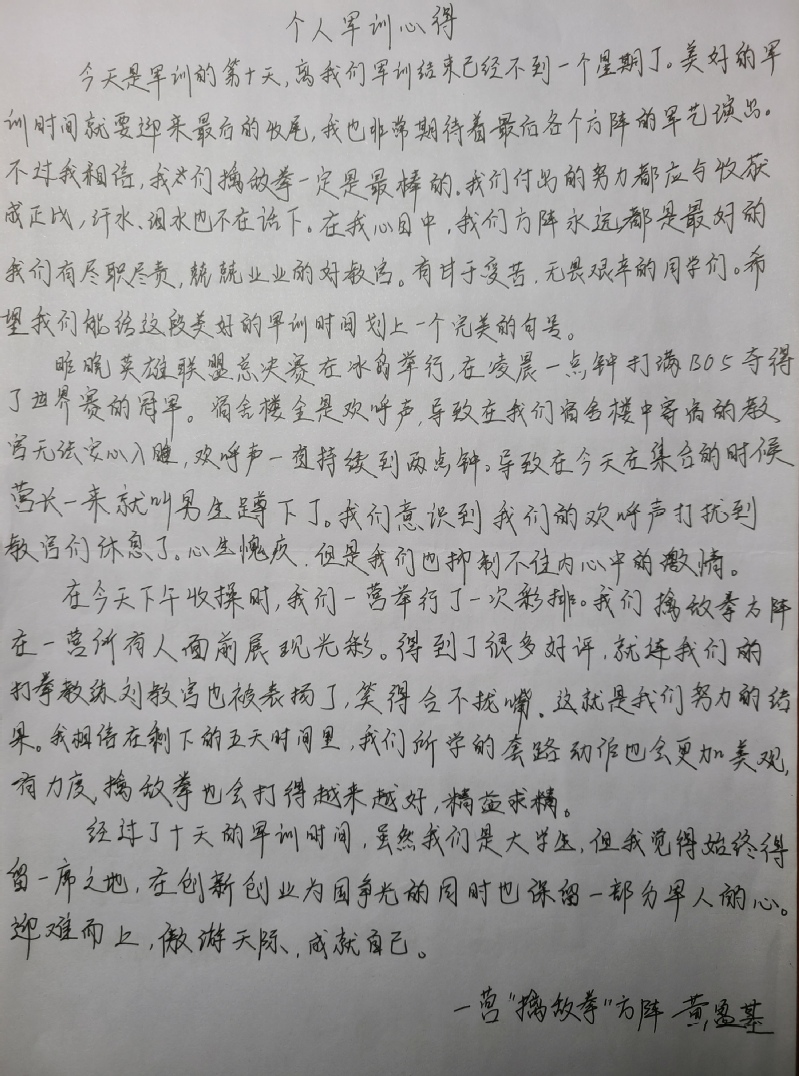 个人军训心得
今天是军训的第十天,离我们军训结束已经不到一个星期了。美好的军
训时间就要迎来最后的收尾,我也非常期待着最后各个方阵的军艺演出。
不过我相信,我们擒敌拳一定是最棒的.我们付出的努力都应与收获
成正比,汗水、泪水也不在话下。在我心目中,我们方阵永远都是最好的
我们有尽职尽责,兢兢业业的好教官。有甘于受苦,无畏艰辛的同学们。希
望我们能给这段美好的军训时间划上一个完美的句号。
昨晚英雄联盟总决赛在冰岛举行,在凌晨一点钟打满BO5夺得
了世界赛的冠军。宿舍楼全是欢呼声,导致在我们宿舍楼中寄宿的教
官无法安心入睡,欢呼声一直持续到两点钟。导致在今天在集合的时候
营长一来就叫男生蹲下了。我们意识到我们的欢呼声打扰到
教官们休息了。心生愧疚.但是我们也抑制不住内心中的激情。
在今天下午收操时,我们一营举行了一次彩排。我们擒敌拳方阵
在一营所有人面前展现光彩。得到了很多好评,就连我们的
打拳教练刘教官也被表扬了,笑得合不拢嘴.这就是我们努力的结
果。我相信在剩下的五天时间里,我们所学的套路动作也会更加美观,
有力度,擒敌拳也会打得越来越好,精益求精。
经过了十天的军训时间,虽然我们是大学生,但我觉得始终得
留一席之地,在创新创业为国争光的同时也保留一部分军人的心。
迎难而上,傲游天际,成就自己。
一营"擒敌拳"方阵 黄盈基